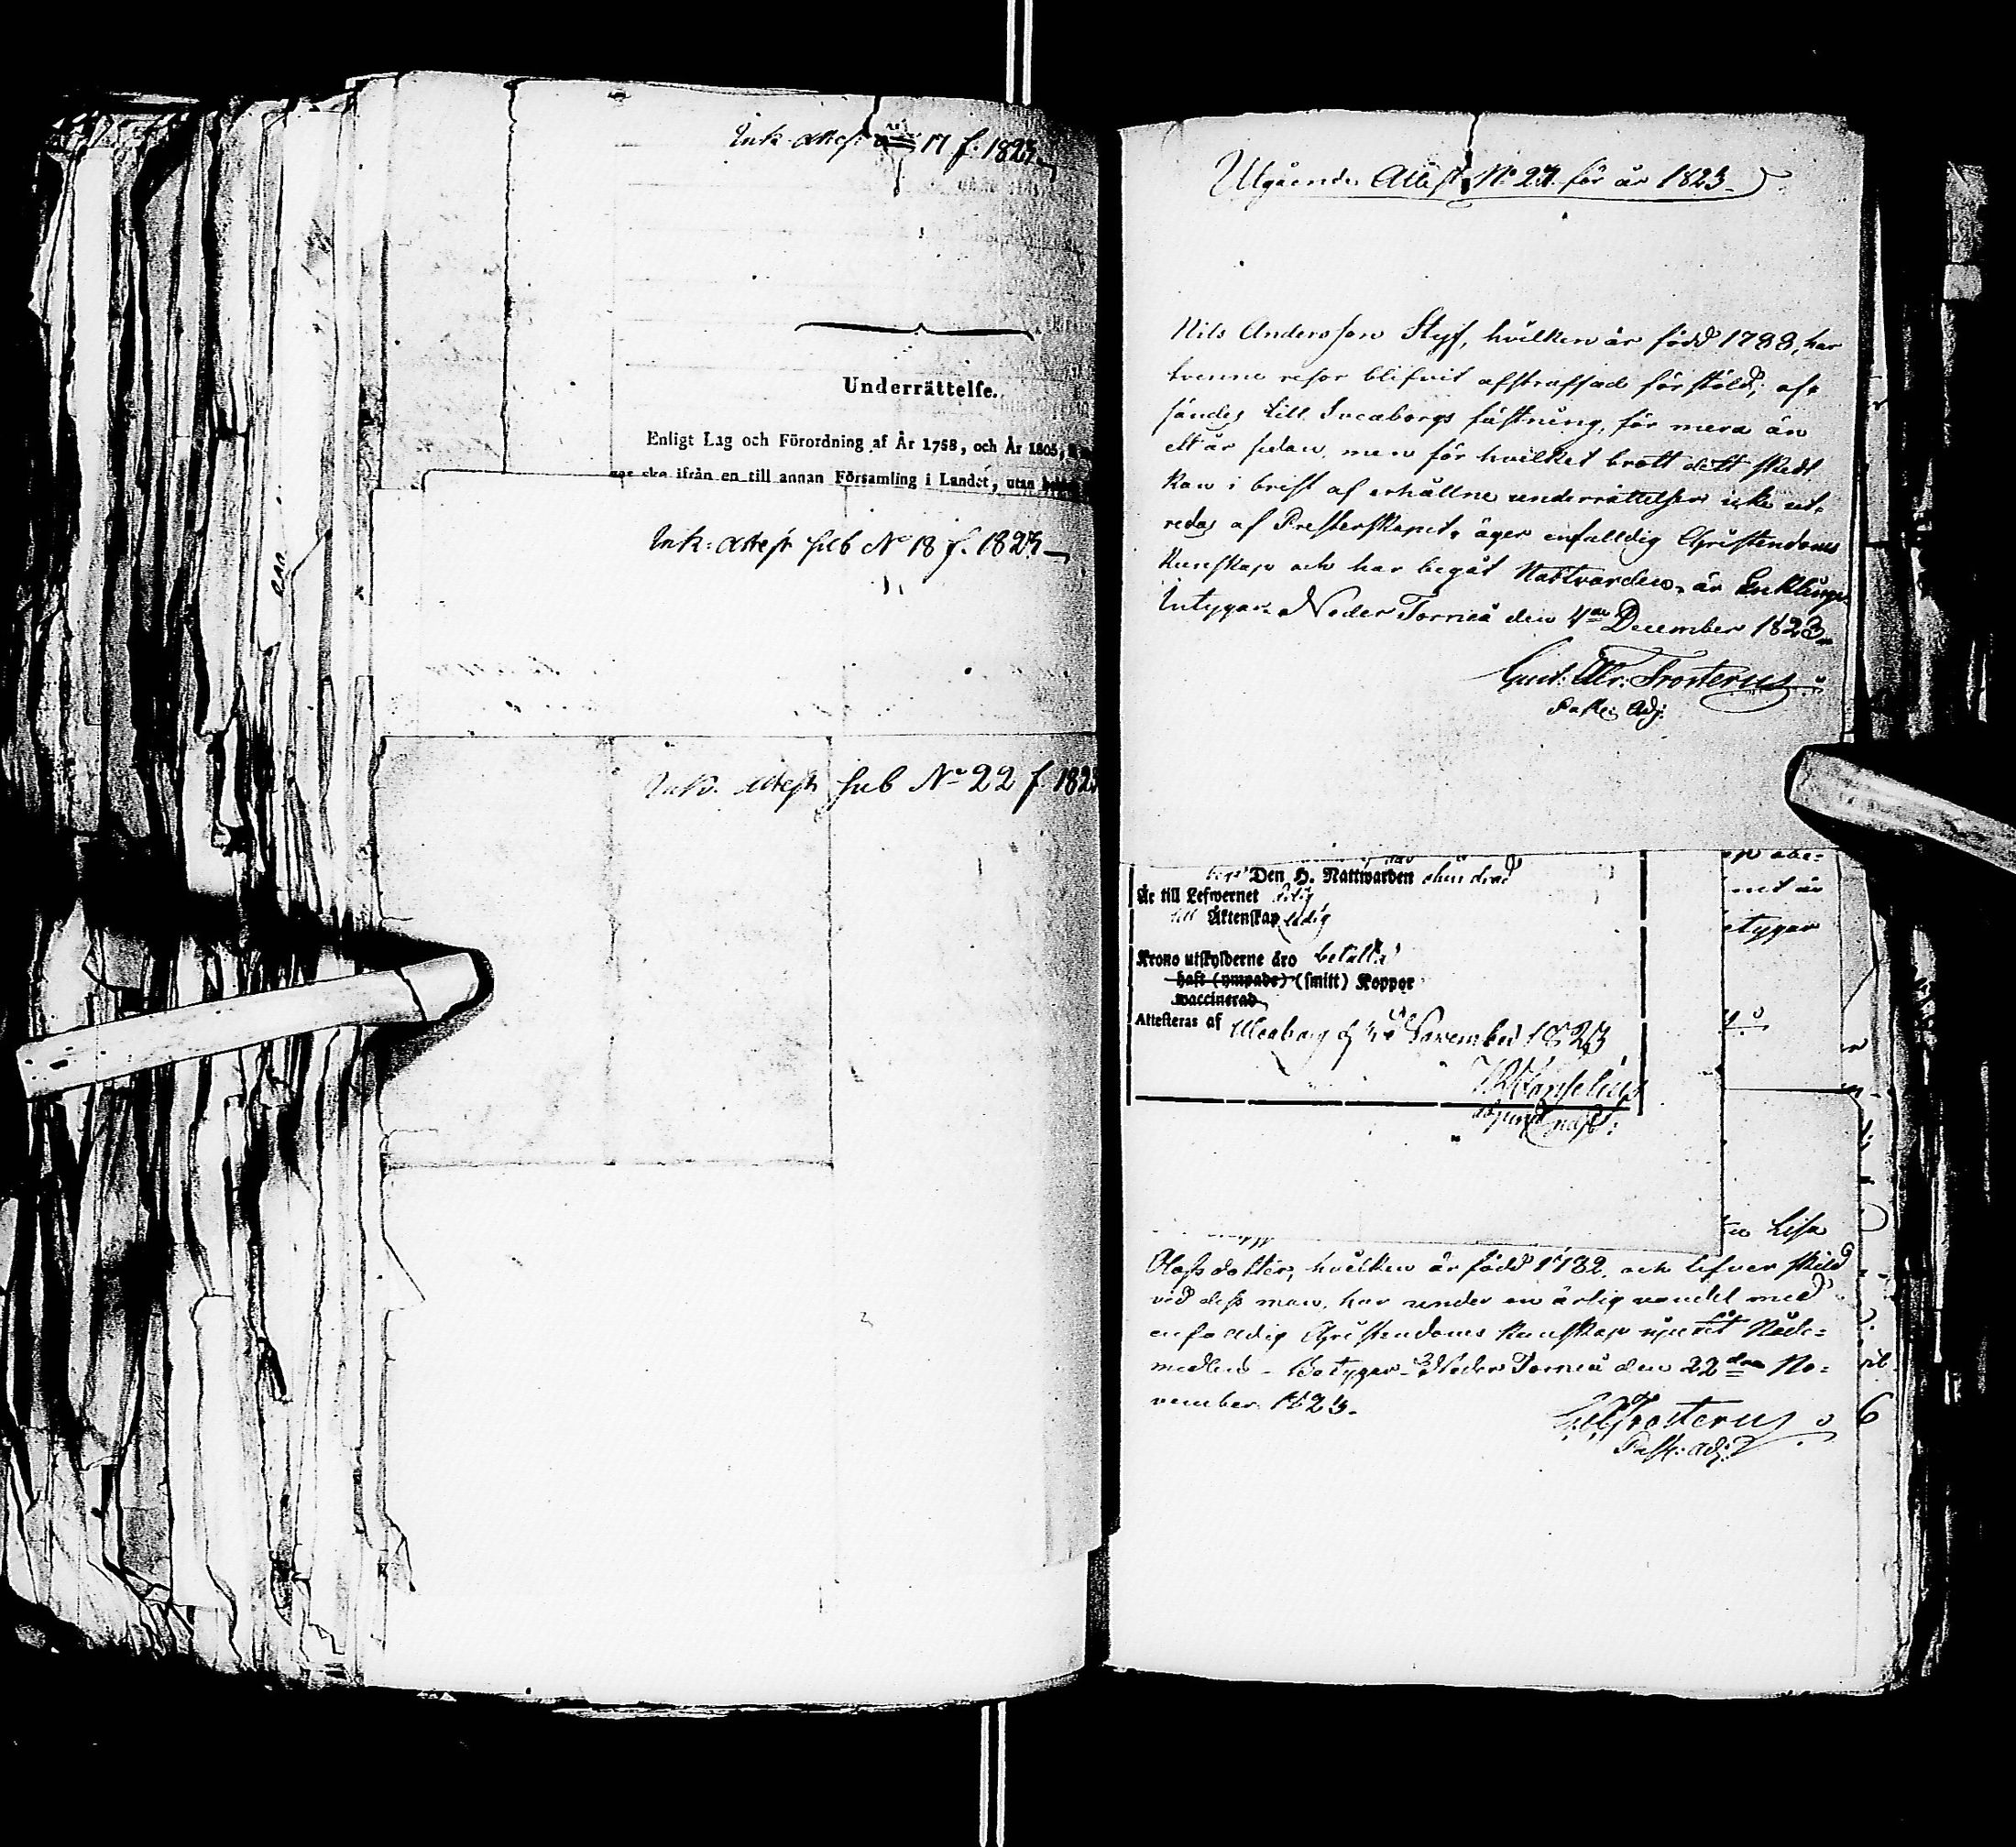 Ink. Attest N° 17 f. 1823
Underrättelse.
Enligt Lag och Förordning af År 1758, och År 1805,
ske ifrån en till annan Församling i Landet, utan
Ink: Attest sub N° 18 f. 1823
Ink. Attest sub N° 22 f. 1823
Utgående Attest N° 27. för år 1823.
Nils Andersson Styf, hvilken är född 1788, har
tvenne resor blifvit afstraffad för stöld; af-
sändes till Sveaborgs fästning, för mera än
ett år sedan, men för hvilket brott dett skedt
kan i brist af erhållne underrättelser icke ut-
redas af Presterskapet, äger enfalldig Christendoms
kunskap och har begåt Nattvarden, är Enkling.
Intygar Neder Torneå den 4de December 1823.
Gust: Frosterus
Past: Adj:
Den H. Nattwarden
Är till Lefwernet
till Äktenskap ledig
Krono utskylderne äro betalta
haft (ympade) (smitt) Koppor
waccinerad
Attesteras af Uleaborg d November 1823
ent är
etygar
Lisa
Olofsdotter, hvilken är född 1782, och lefver skild
vid dess man, har under en ärlig vandel med
enfalldig Christendoms kunskap njutit Nåde-
medlen. Betygar Neder Torneå den 22dra No-
vember 1823.
Frosterus
Past: Adj:
6